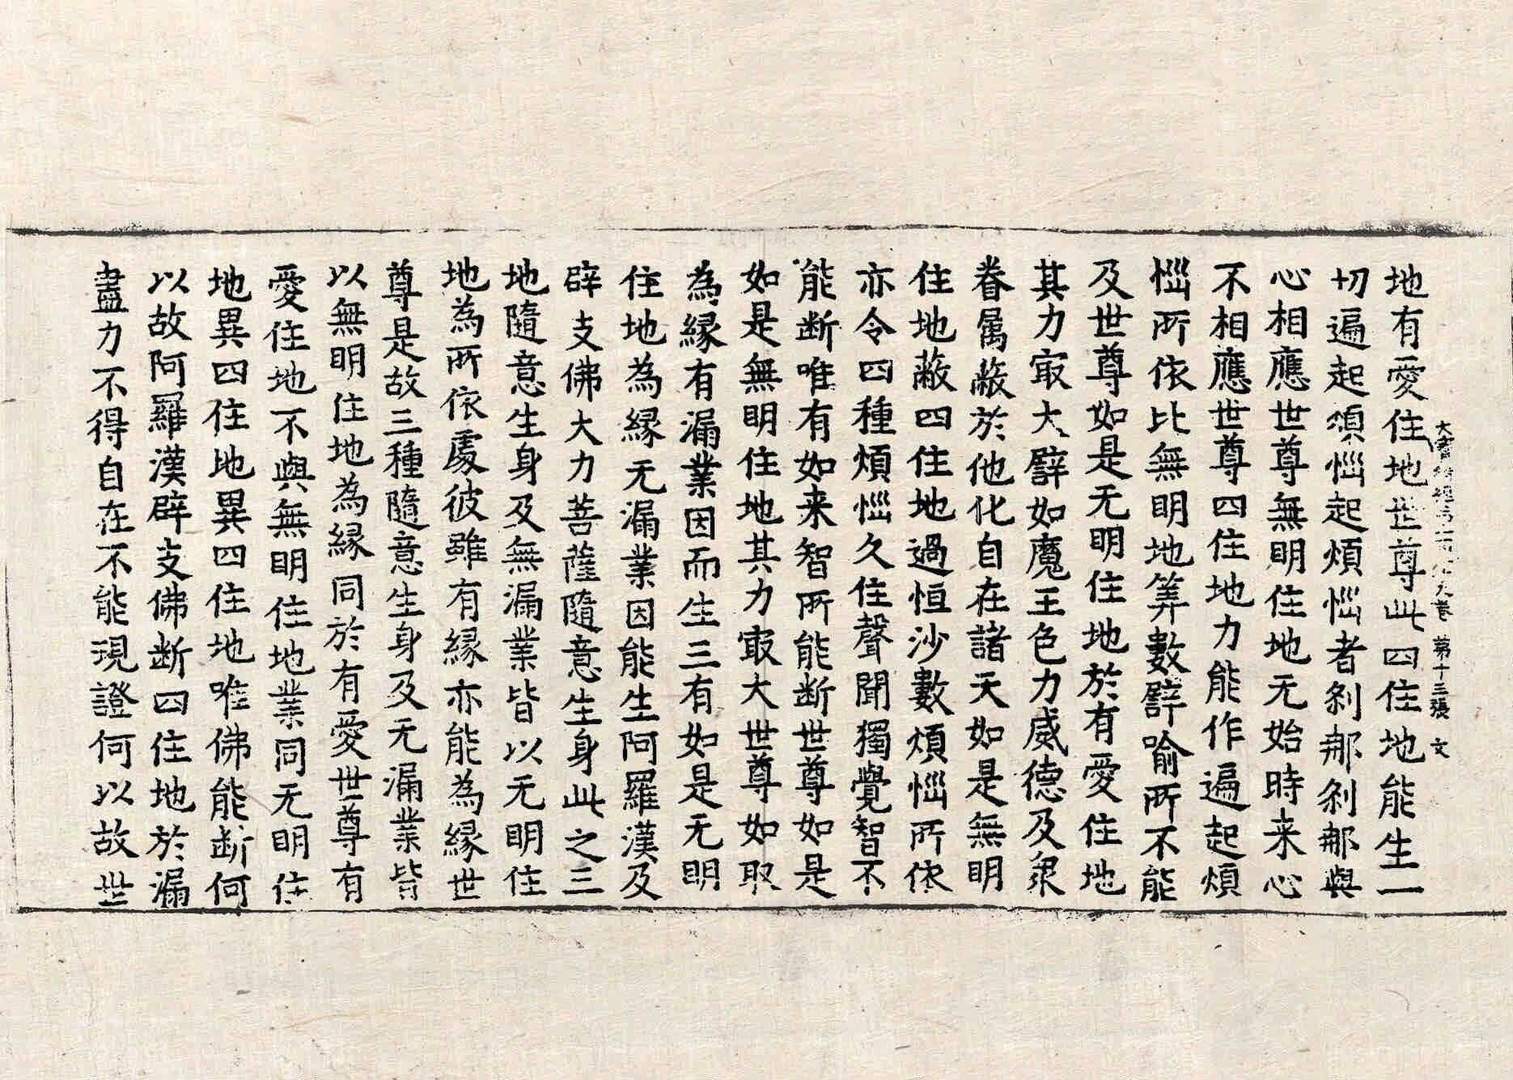 地有愛住地世尊此四住地能生一
切遍起煩惱起煩惱者刹那刹那與
心相應世尊無明住地无始時来心
不相應世尊四住地力能作遍起煩
惱所依比無明地筭數譬喻所不能
及世尊如是无明住地於有愛住地
其力㝡大譬如魔王色力威德及衆
眷属蔽於他化自在諸天如是無明
住地蔽四住地過恒沙數煩惱所依
亦令四種煩惱久住聲聞獨覺智不
能断唯有如来智所能断世尊如是
如是無明住地其力㝡大世尊如取
為縁有漏業因而生三有如是无明
住地為縁无漏業因能生阿羅漢及
辟支佛大力菩薩隨意生身此之三
地隨意生身及無漏業皆以无明住
地為所依處彼雖有縁亦能為縁世
尊是故三種隨意生身及无漏業皆
以無明住地為縁同於有愛世尊有
愛住地不與無明住地業同无明住
地異四住地異四住地唯佛能断何
以故阿羅漢辟支佛断四住地於漏
盡力不得自在不能現證何以故世
第十三張 文